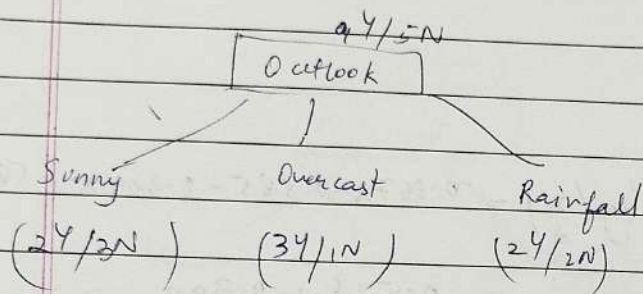 9Y/5N
Outlook
Sunny Overcast Rainfall
(2Y/3N) (3Y/1N) (2Y/2N)